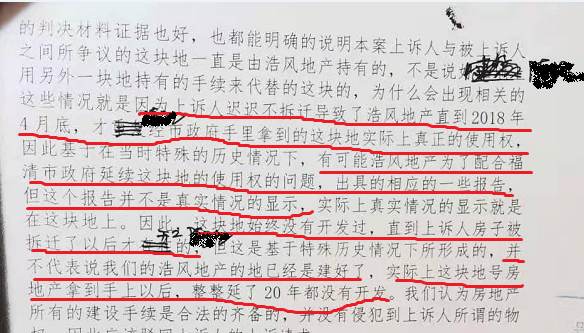 的判决材料证据也好，也都能明确的说明本案上诉人与被上诉人
之间所争议的这块地一直是由浩风地产持有的，不是说
用另外一块地持有的手续来代替的这块的，为什么会出现相关的
这些情况就是因为上诉人迟迟不拆迁导致了浩风地产直到2018年
4月底，才 经市政府手里拿到的这块地实际上真正的使用权，
因此基于在当时特殊的历史情况下，有可能浩风地产为了配合福
清市政府延续这块地的使用权的问题，出具的相应的一些报告，
但这个报告并不是真实情况的显示，实际上真实情况的显示就是
在这块地上。因此 这块地始终没有开发过，直到上诉人房子被
拆迁了以后才 的，但这是基于特殊历史情况下所形成的，并
不代表说我们的浩风地产的地已经是建好了，实际上这块地号房
地产拿到手上以后，整整延了20年都没有开发。我们认为房地产
所有的建设手续是合法的齐备的，并没有侵犯到上诉人所谓的物